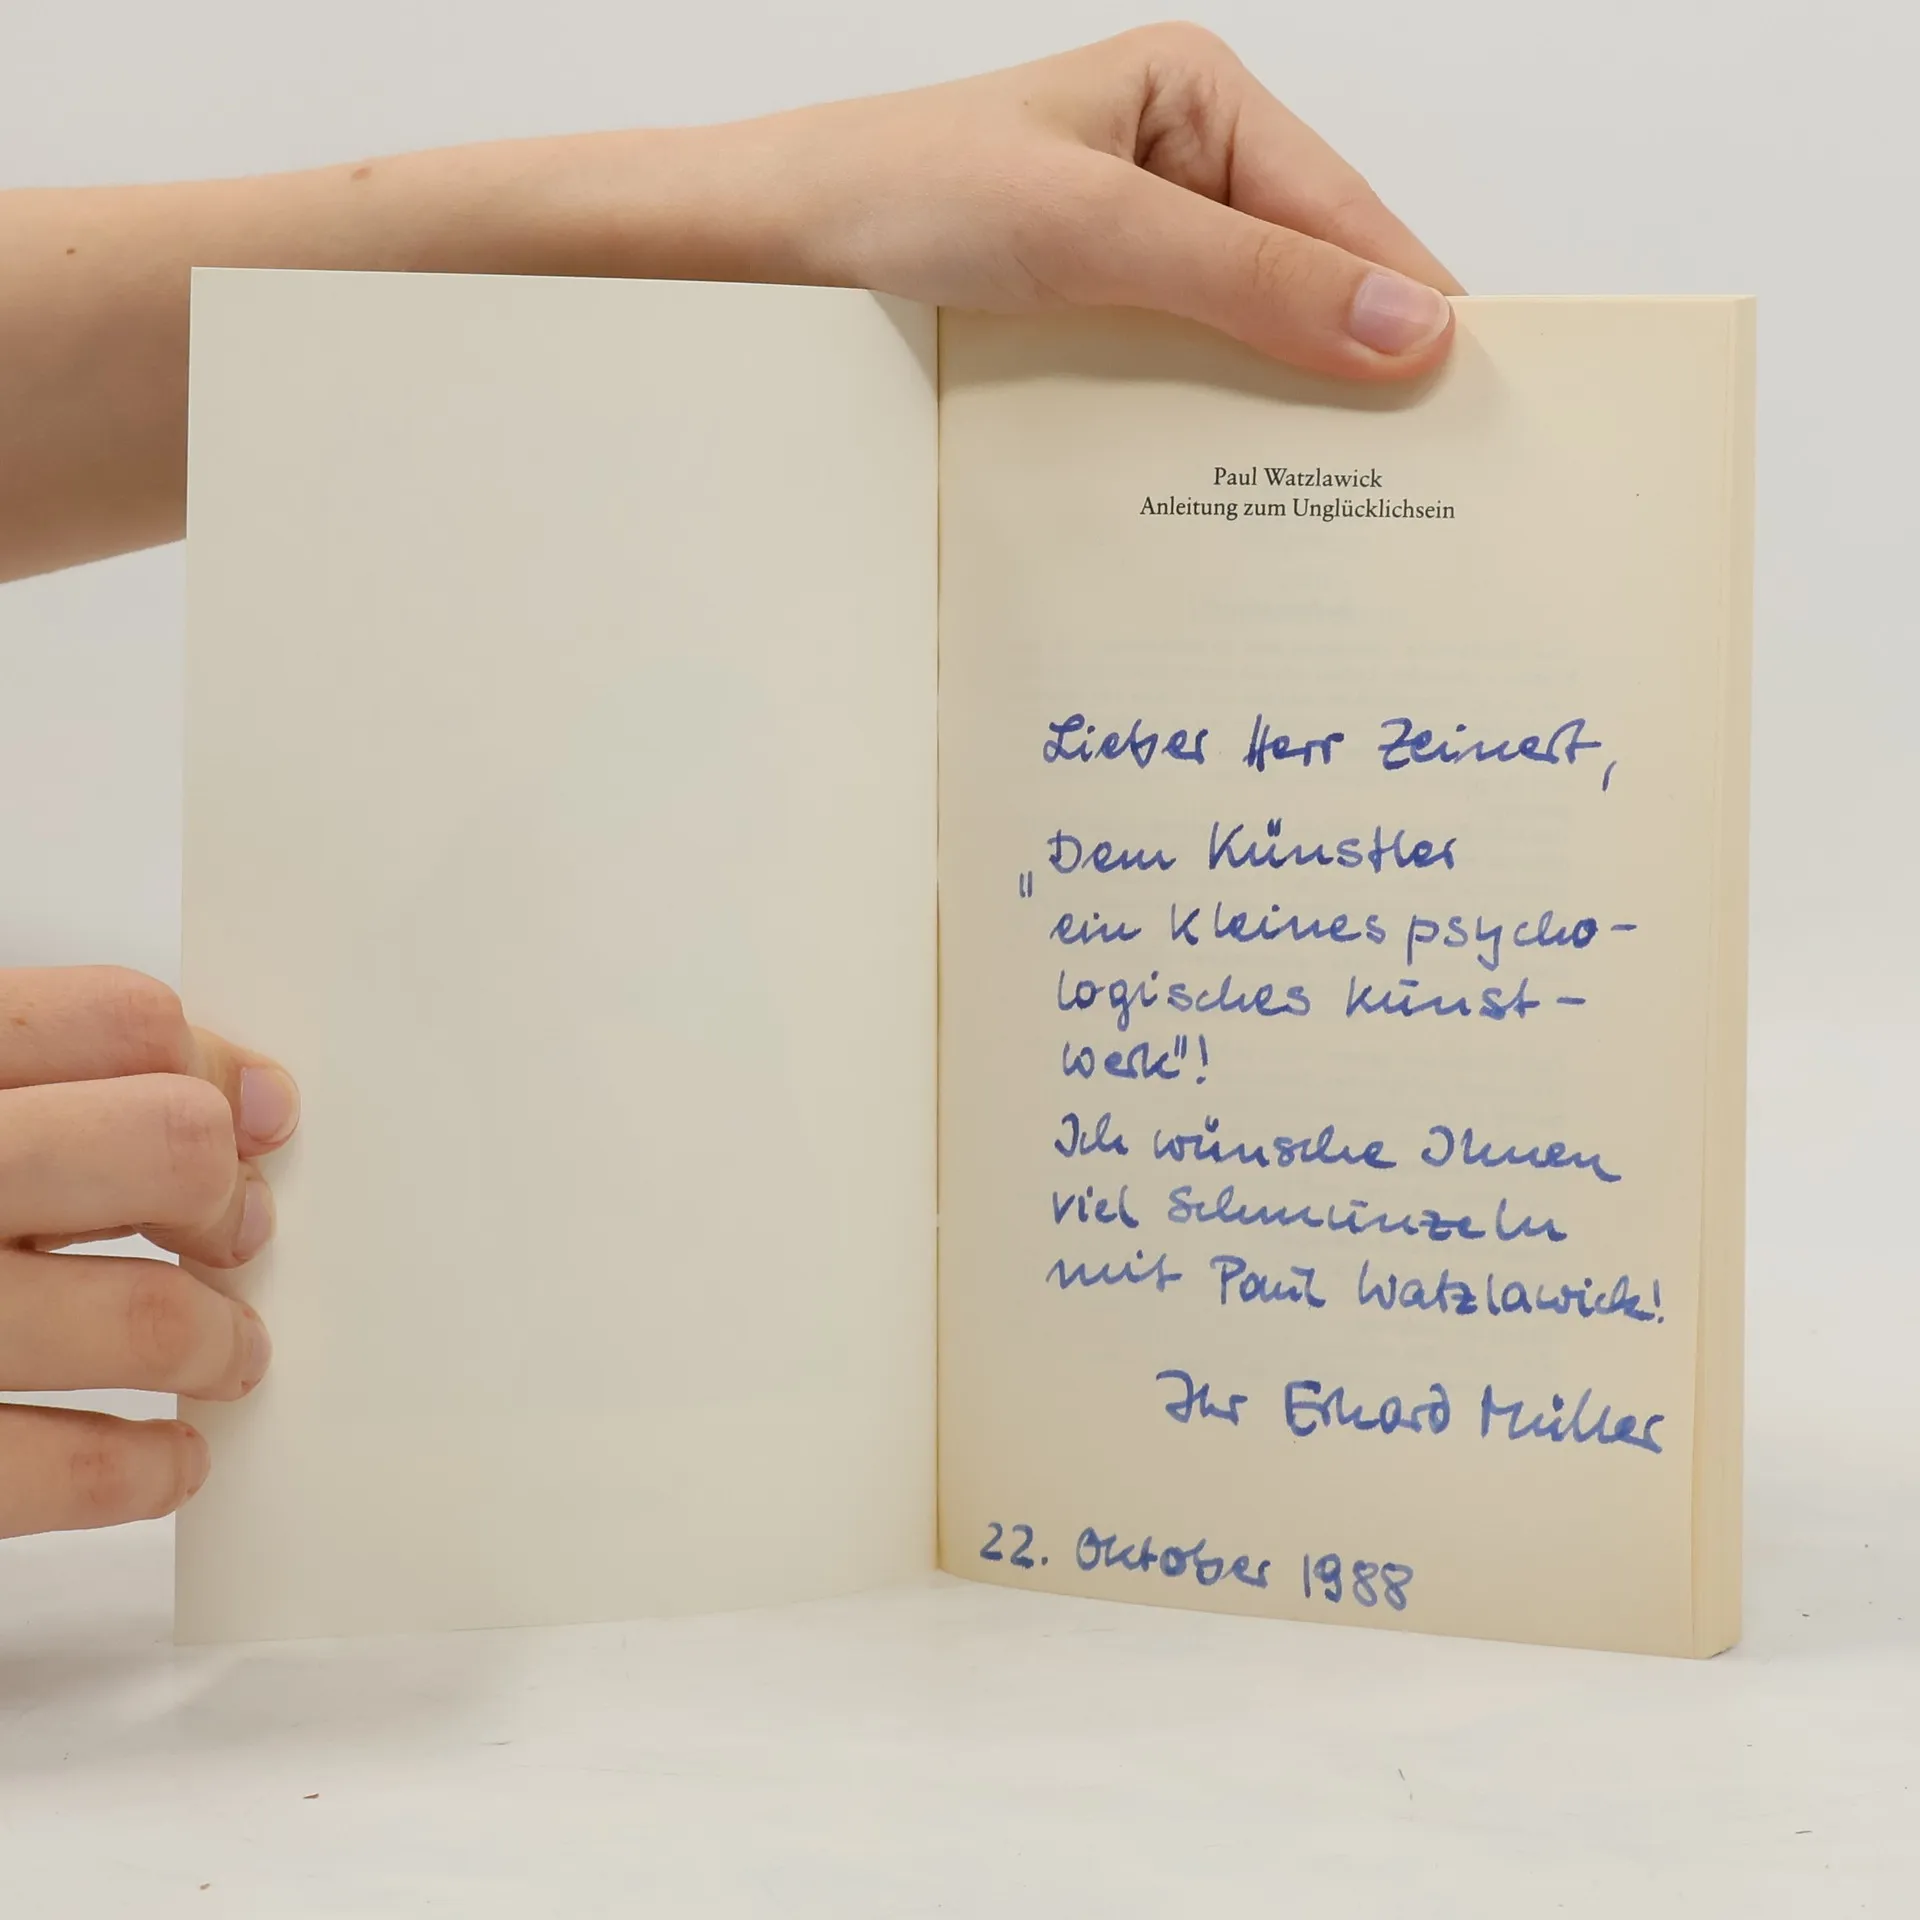 Paul Watzlawick
Anleitung zum Unglücklichsein
Lieber Herr Zeinert,
„Dem Künstler
ein kleines psycho-
logisches Kunst-
werk"!
Ich wünsche Ihnen
viel Schmunzeln
mit Paul Watzlawick!
Ihr Erhard Müller
22. Oktober 1988